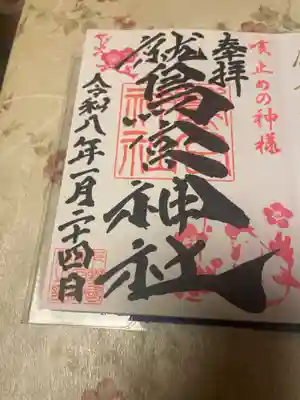 咳止めの神様
奉拝
鷲宮神社
令和八年一月二十四日